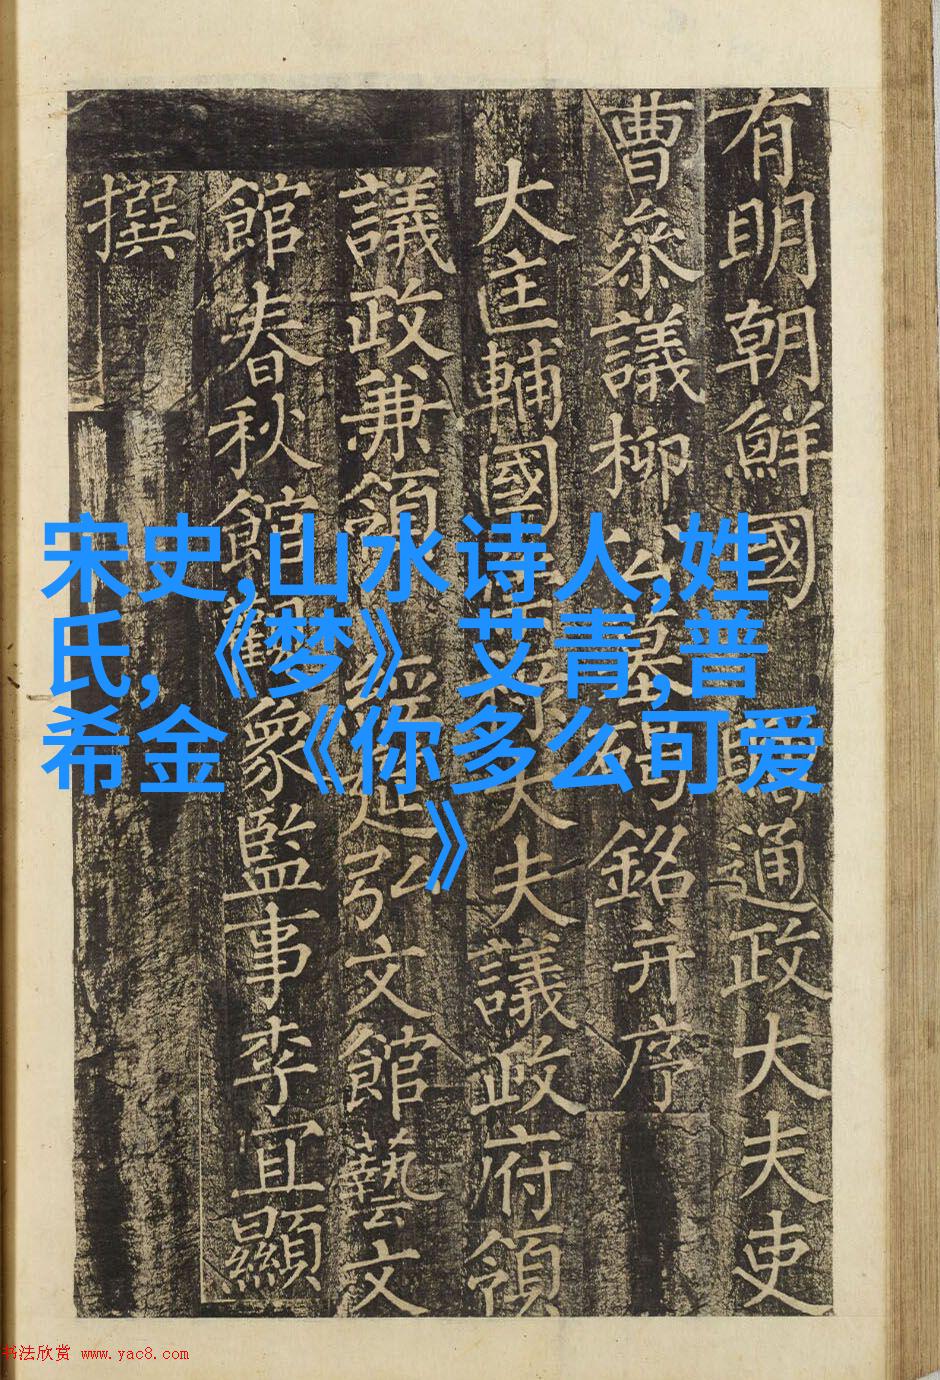 有明朝鮮國 贈通政大夫吏
曹叅議柳公墓碣銘并序
大匡輔國崇祿大夫議政府領
議政兼領 經筵弘文館藝文
館春秋館觀象監事李宜顯
撰
宋史,山水诗人,姓
氏,《梦》艾青,普
希金《你多么可爱
》
书法欣赏 www.yac8.com